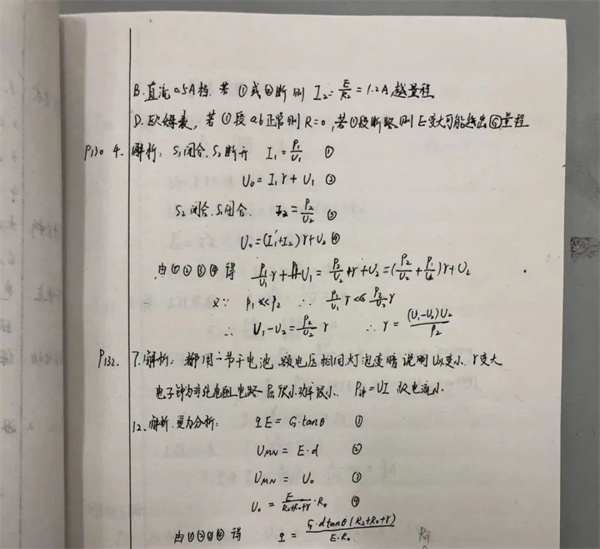 B. 直流0.5A档. 若①或②断 则 I₂=E/R₂=1.2A, 越量程
D. 欧姆表, 若①段ab正常则R=0, 若①段断路则E变大可能越出⑥量程
P130 4. 解析: S₁闭合, S₂断开 I₁=P₁/U₁ ①
U₀=I₁r+U₁ ②
S₂闭合, S₁闭合. I₂=P₂/U₂ ③
U₀=(I₁'+I₂)r+U₂ ④
由①②③④得 P₁/U₁ r+U₁=(P₂/U₂+P₁/U₁)r+U₂
又∵ P₁≪P₂ ∴ P₁/U₁ r≪P₂/U₂ r
∴ U₁-U₂=P₂/U₂ r ∴ r=(U₁-U₂)U₂/P₂
P132. 7. 解析: 都用一节干电池, 电压相同 灯泡变暗 说明U变小, r变大
电子钟为非纯电阻电路 功率很小. P=UI 故电流小.
12. 解析 受力分析: qE=G·tanθ ①
U_MN=E·d ②
U_MN=U₀ ③
U₀=E/(R₂+R₀+r)·R₀ ④
由①②③④得 q=G·dtanθ(R₂+R₀+r)/(E·R₀)